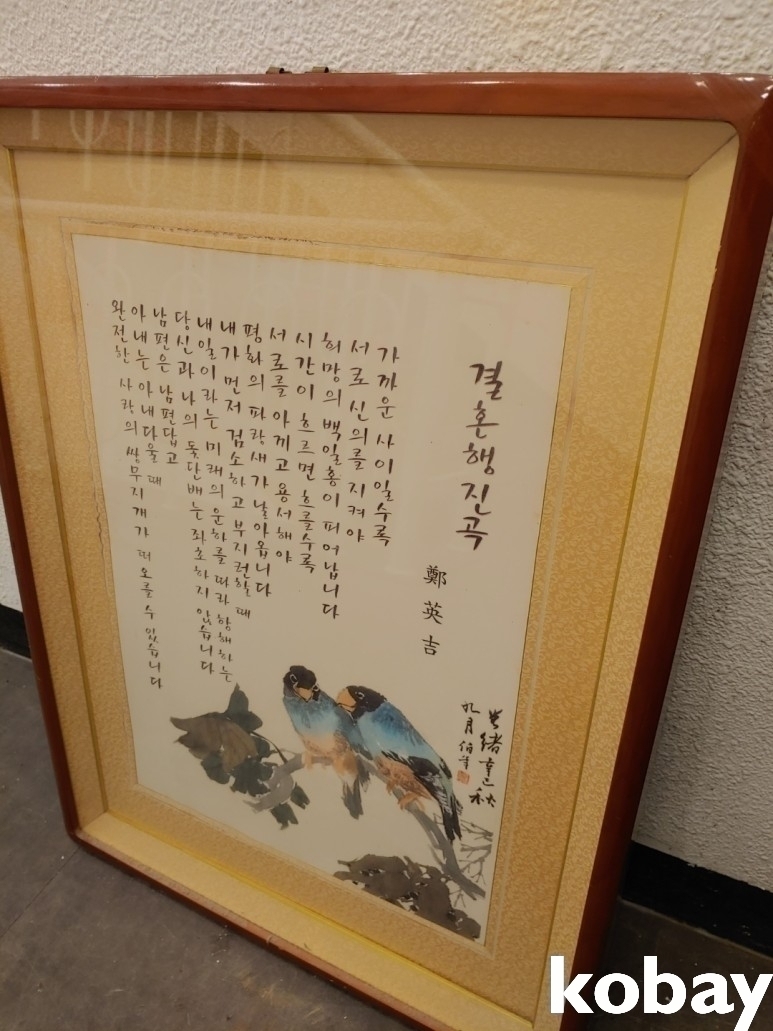 결혼행진곡
鄭英吉
가까운 사이일수록
서로 신의를 지켜야
희망의 백일홍이 피어납니다
시간이 흐르면 흐를수록
서로를 아끼고 용서해야
평화의 파랑새가 날아옵니다
내가 먼저 검소하고 부지런할 때
내일이라는 미래의 운하를 따라 항해하는
당신과 나의 돛단배는 좌초하지 않습니다
남편은 남편답고
아내는 아내다울 때
완전한 사랑의 쌍무지개가 떠오를 수 있습니다
緖 辛巳 秋
九月
kobay